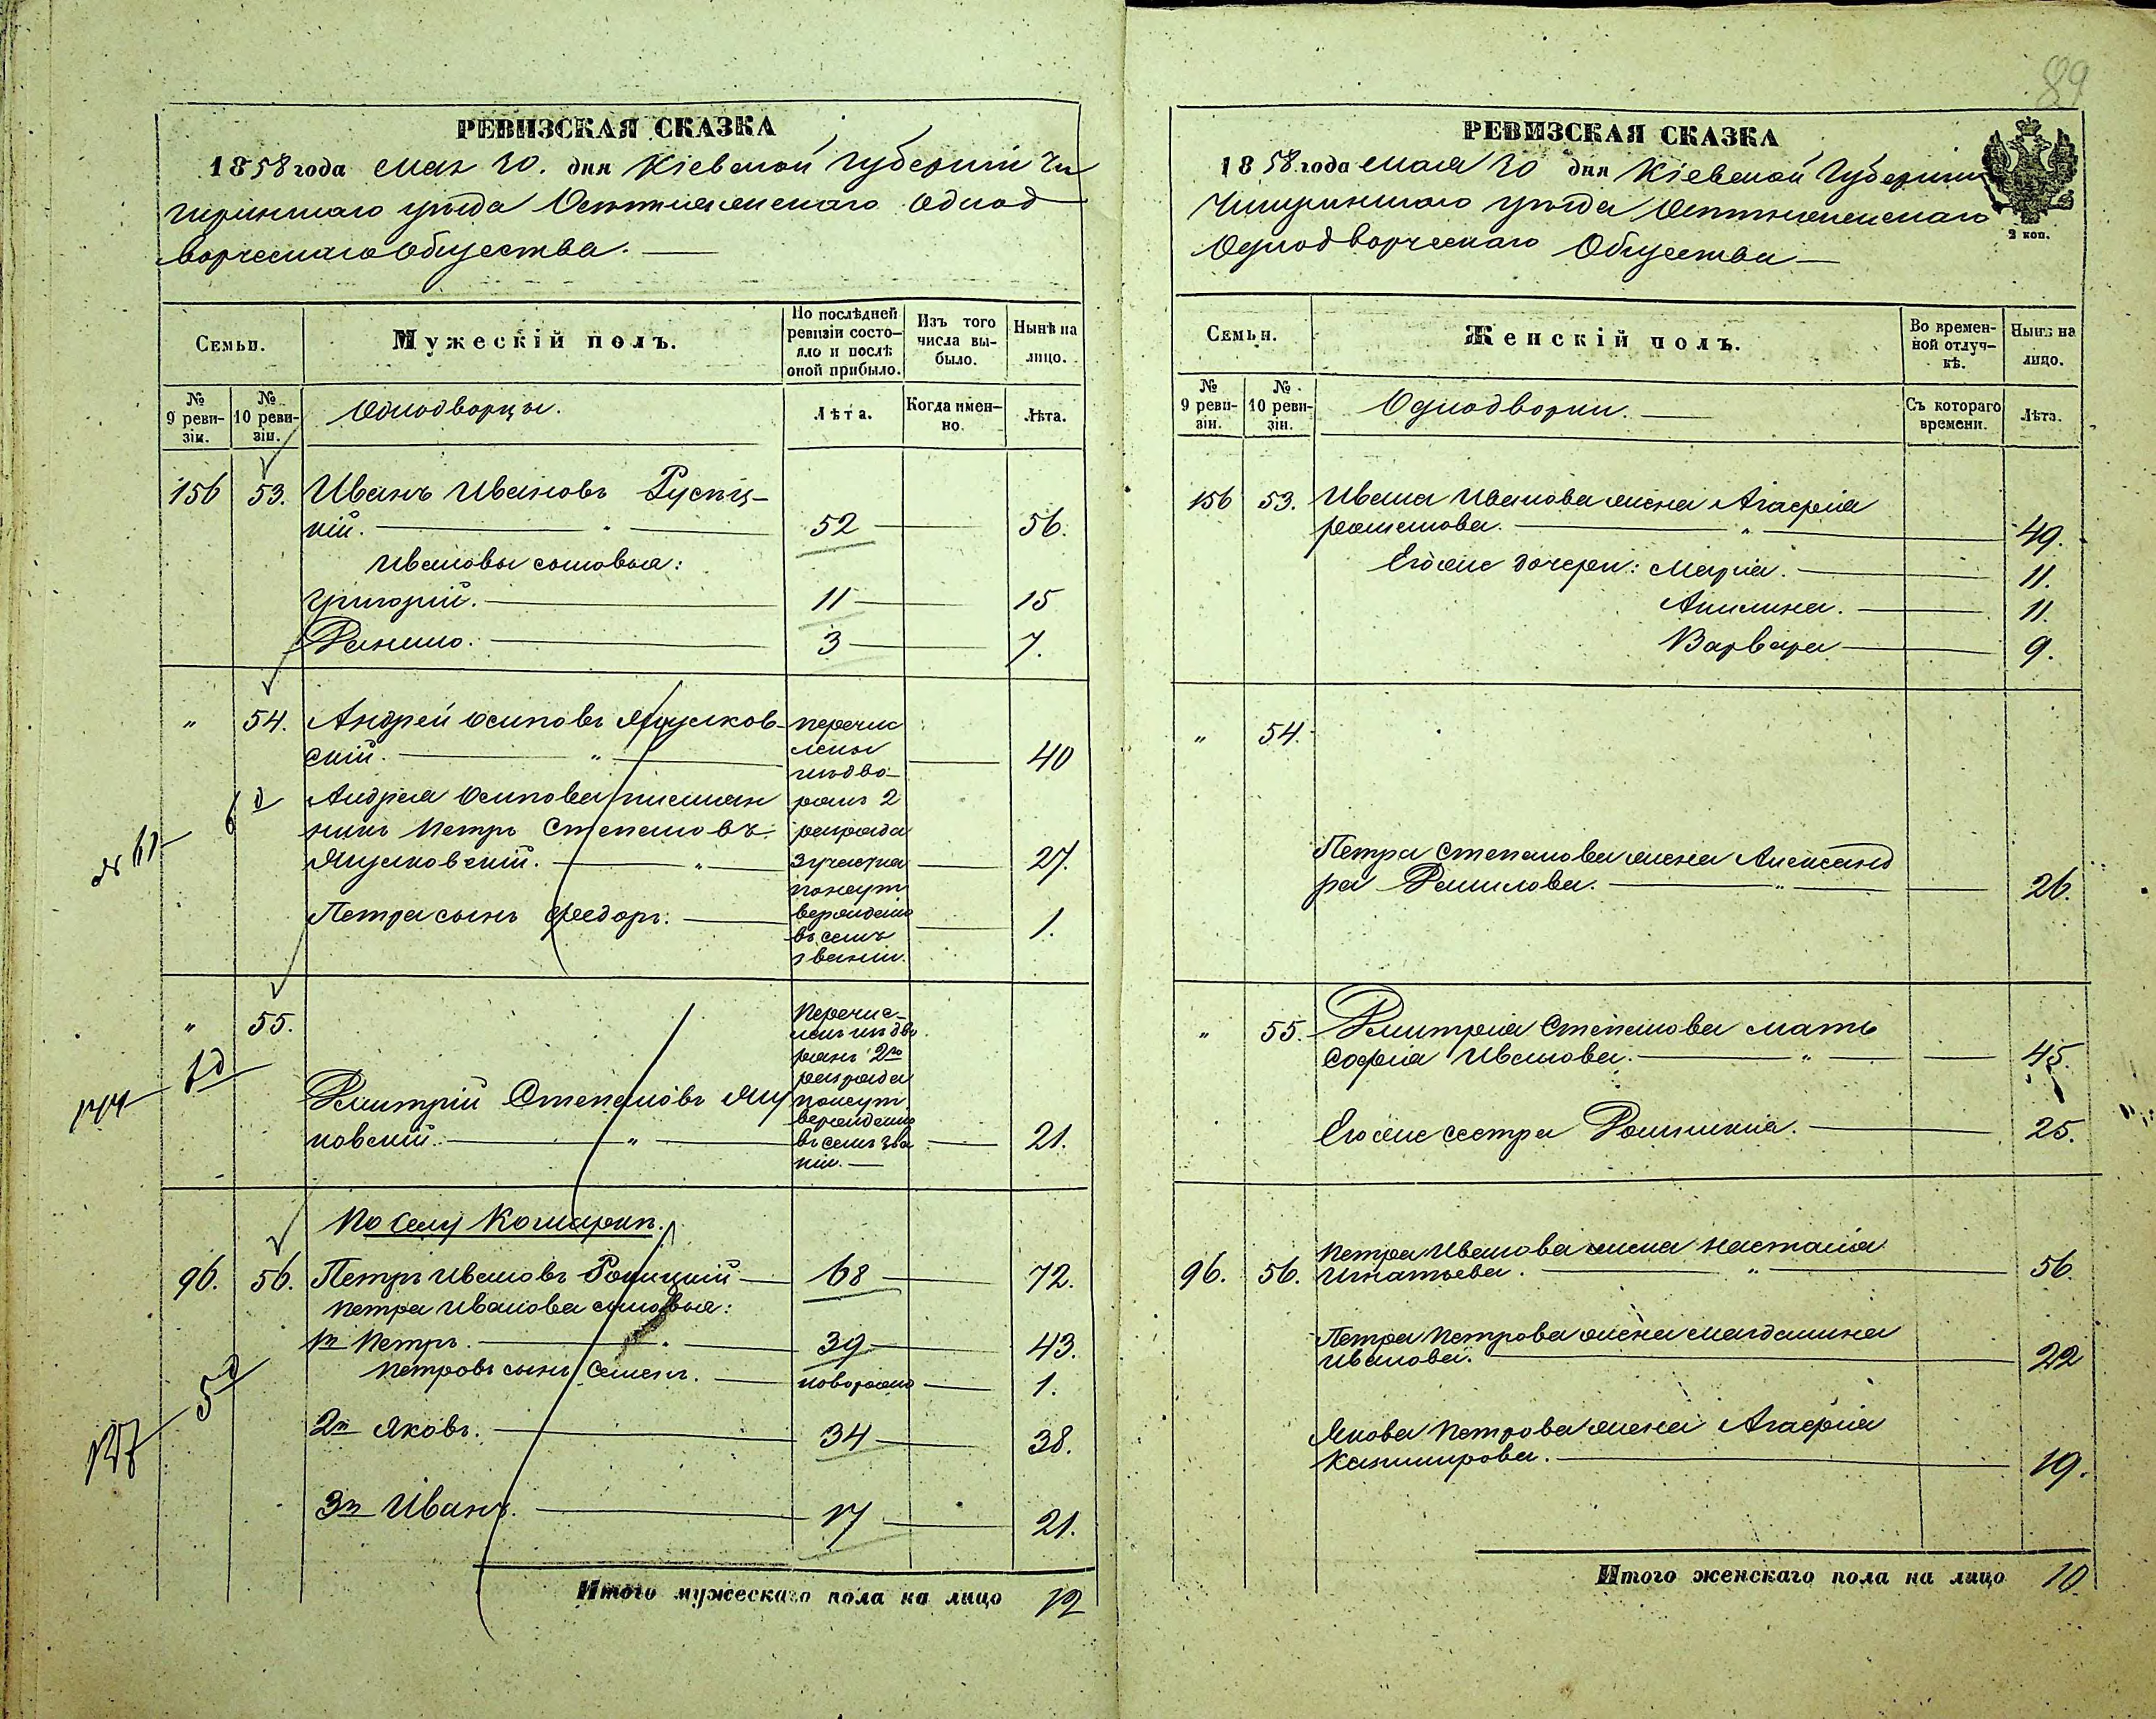 89
РЕВИЗСКАЯ СКАЗКА
1858 года мая 30. дня Кіевской Губерніи Чи
гиринскаго уѣзда Однод
ворческаго Общества. —
Семьи.
Мужескій полъ.
По послѣдней ревизіи состояло и послѣ оной прибыло.
Изъ того числа выбыло.
Нынѣ на лицо.
№ 9 ревизіи.
№ 10 ревизіи.
Однодворцы.
Лѣта.
Когда именно.
Лѣта.
156 53. Иванъ Ивановъ
кій. — 52 — 56.
Ивановы сыновья:
Григорій. — 11 — 15
Данило. — 3 — 7.
" 54. Андрей Осиповъ Янушков-
скій. — " — 40
Андрея Осипова племян
никъ Петръ Степановъ
Янушковскій. — " — 27.
Петра сынъ Федоръ. — 1.
перечис
лены
изъ дво-
рянъ 2
разряда
званіи.
№ 61
6 д
" 55.
Дмитрій Степановъ Яну
ковскій. — " — 21.
Перечис-
ленъ изъ дво
рянъ 2го
разряда
въ семъ зва
ніи. —
По селу Кошарки.
96. 56. Петръ Ивановъ — 68 — 72.
Петра Иванова сыновья:
1й Петръ. — 39 — 43.
Петровъ сынъ Семенъ. — новорожд — 1.
2й Яковъ. — 34 — 38.
3й Иванъ. — 17 — 21.
127
5 д
Итого мужескаго пола на лицо 12
РЕВИЗСКАЯ СКАЗКА
1858. года мая 30 дня Кіевской Губерніи
Чигиринскаго уѣзда
Однодворческаго Общества —
2 коп.
Семьи.
Женскій полъ.
Во временной отлучкѣ.
Нынѣ на лицо.
№ 9 ревизіи.
№ 10 ревизіи.
Однодворки. —
Съ котораго времени.
Лѣта.
156 53. Ивана Иванова жена Агафія
— " — 49.
Егоже дочери: Марія. — 11.
Акилина. — 11.
Варвара — 9.
" 54.
Петра Степанова жена Александ
ра Данилова. — " — 26.
" 55. Дмитрія Степанова мать
Софія Иванова. — " — 45.
Егоже сестра — 25.
96. 56. Петра Иванова жена Настасія
Игнатьева. — " — 56.
Петра Петрова жена Магдалина
Иванова. — 22
Якова Петрова жена Агафія
Казимирова. — 19.
Итого женскаго пола на лицо 10.